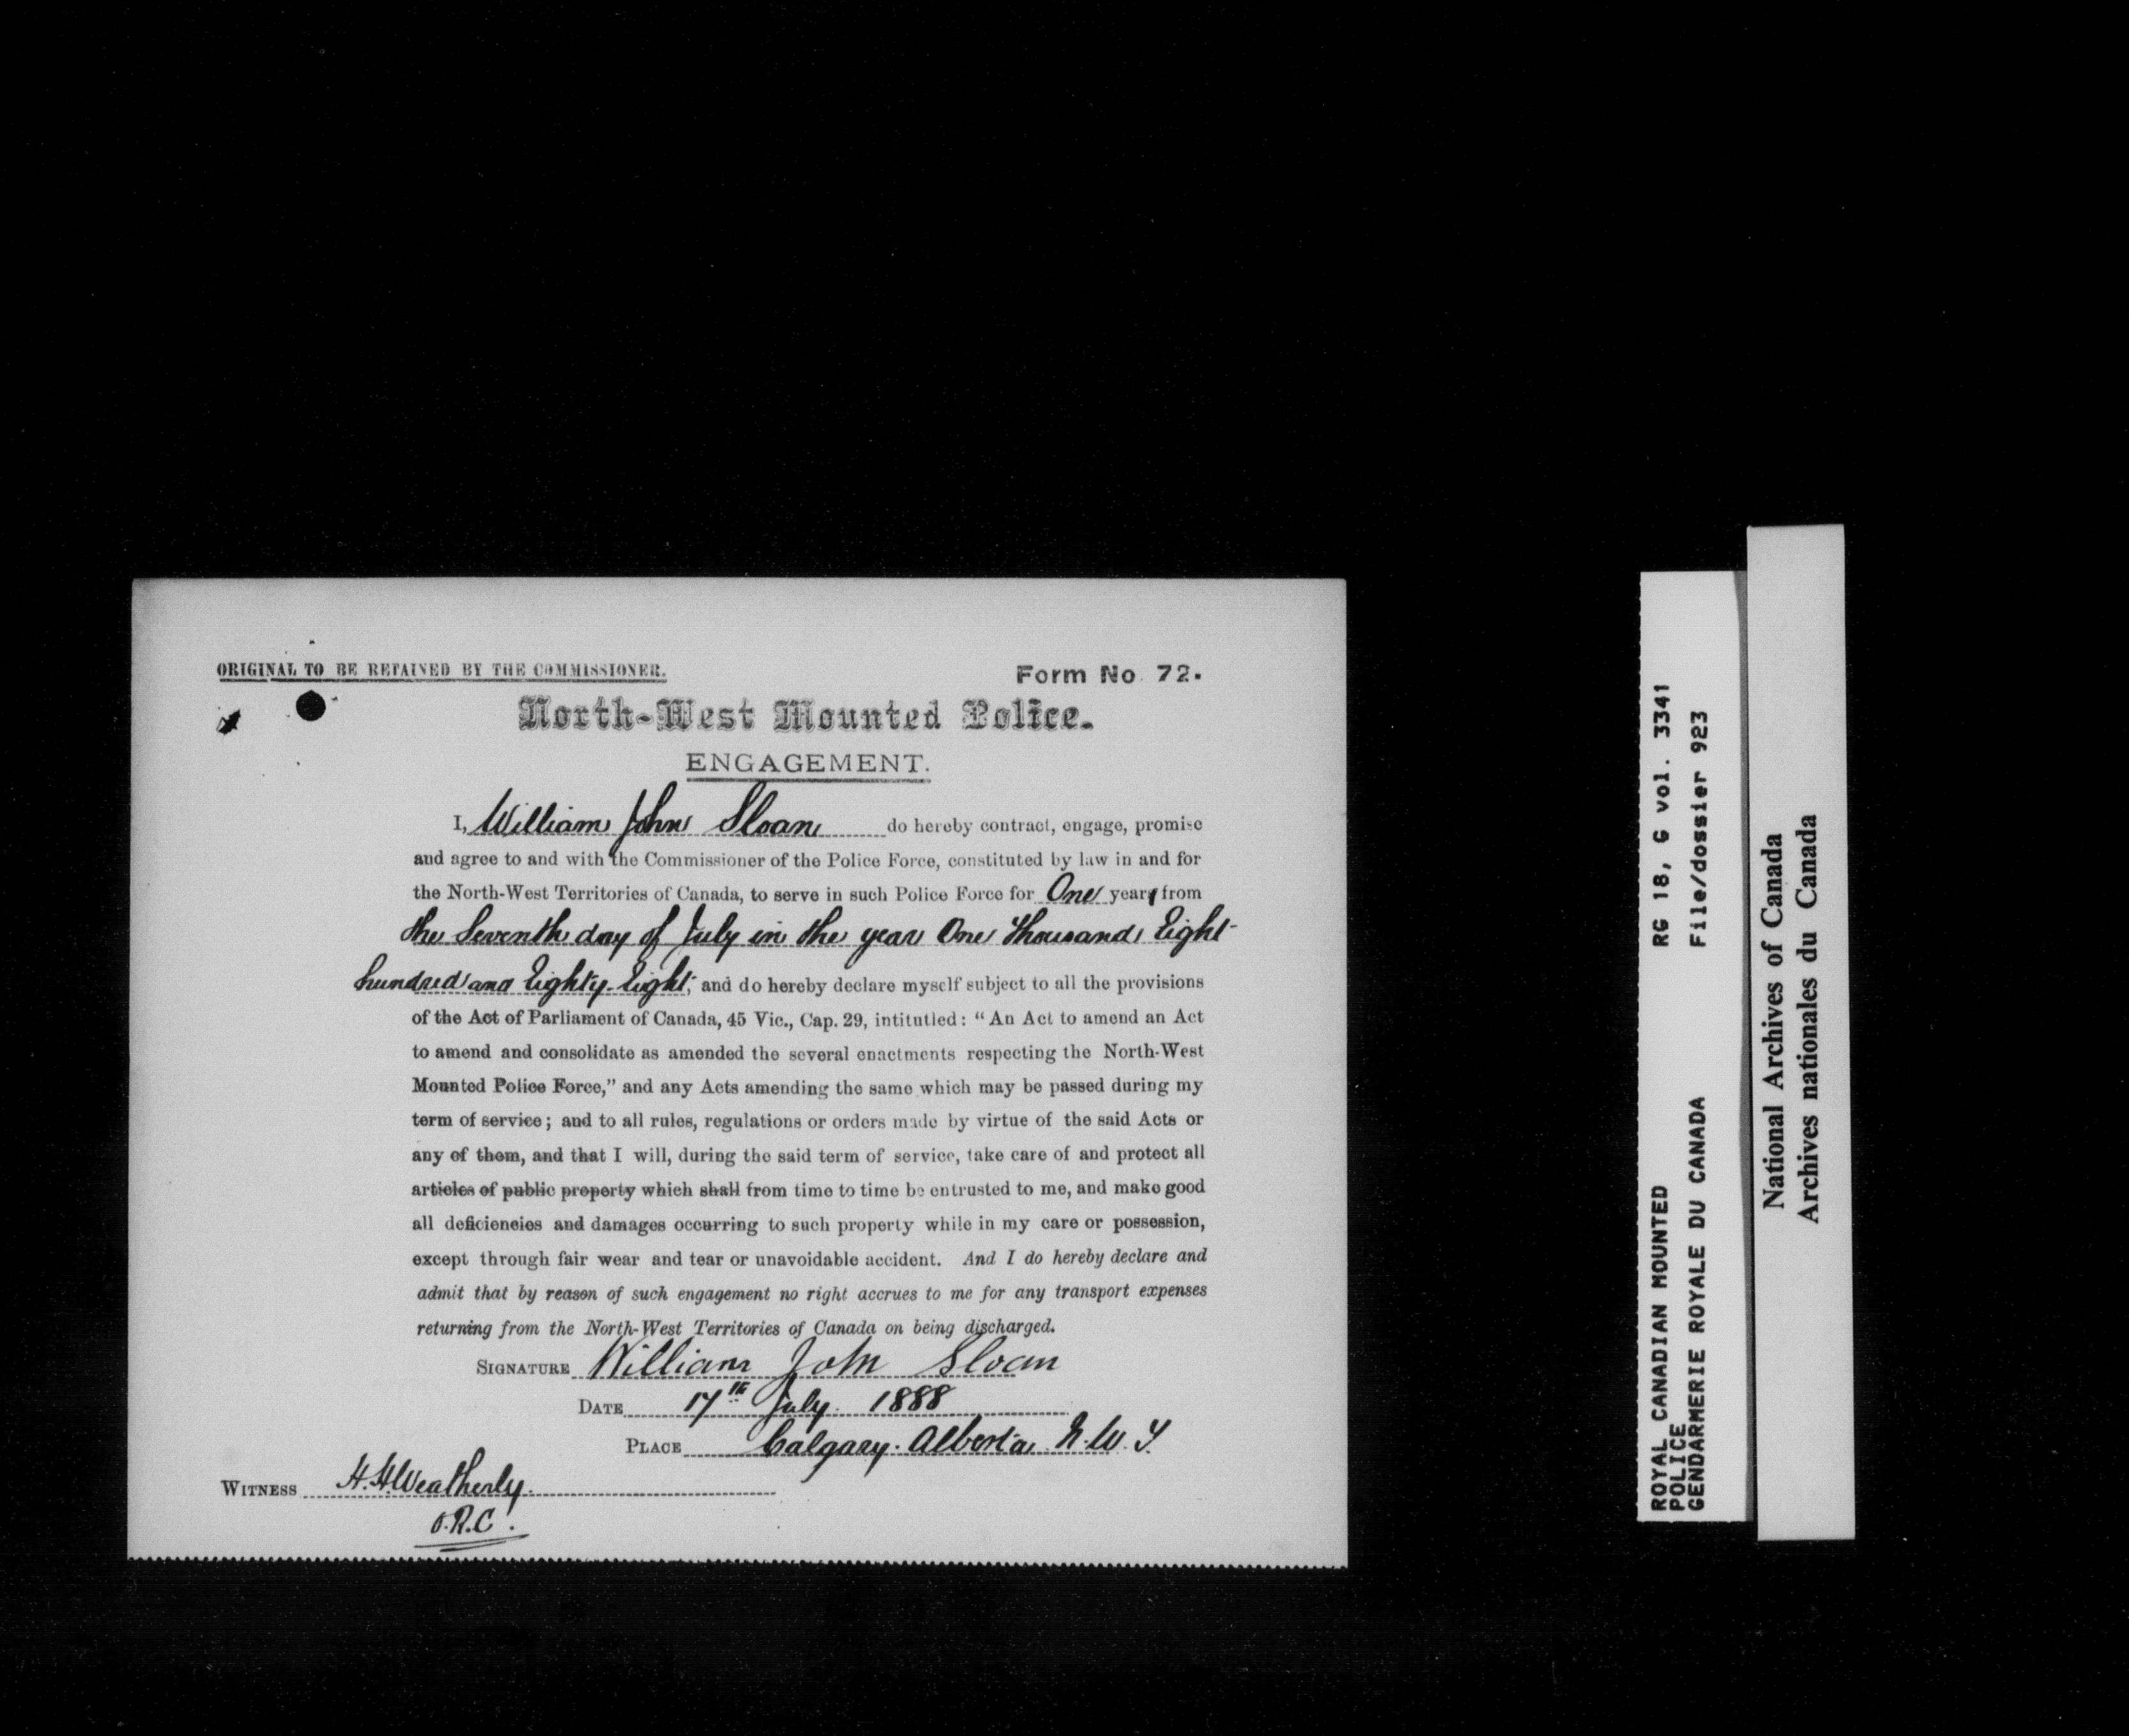 ORIGINAL TO BE RETAINED BY THE COMMISSIONER.
Form No 72.
North-West Mounted Police.
ENGAGEMENT.
I, William John Sloan do hereby contract, engage, promise
and agree to and with the Commissioner of the Police Force, constituted by law in and for
the North-West Territories of Canada, to serve in such Police Force for One year from
the Seventh day of July in the year One thousand Eight
hundred and Eighty-Eight, and do hereby declare myself subject to all the provisions
of the Act of Parliament of Canada, 45 Vic., Cap. 29, intitutled: "An Act to amend an Act
to amend and consolidate as amended the several enactments respecting the North-West
Mounted Police Force," and any Acts amending the same which may be passed during my
term of service; and to all rules, regulations or orders made by virtue of the said Acts or
any of them, and that I will, during the said term of service, take care of and protect all
articles of public property which shall from time to time be entrusted to me, and make good
all deficiencies and damages occurring to such property while in my care or possession,
except through fair wear and tear or unavoidable accident. And I do hereby declare and
admit that by reason of such engagement no right accrues to me for any transport expenses
returning from the North-West Territories of Canada on being discharged.
SIGNATURE William John Sloan
DATE 17th July 1888
PLACE Calgary. Alberta N.W.T.
WITNESS H.H. Weatherly.
O.R.C.
ROYAL CANADIAN MOUNTED RG 18, G vol. 3341
POLICE
GENDARMERIE ROYALE DU CANADA File/dossier 923
National Archives of Canada
Archives nationales du Canada